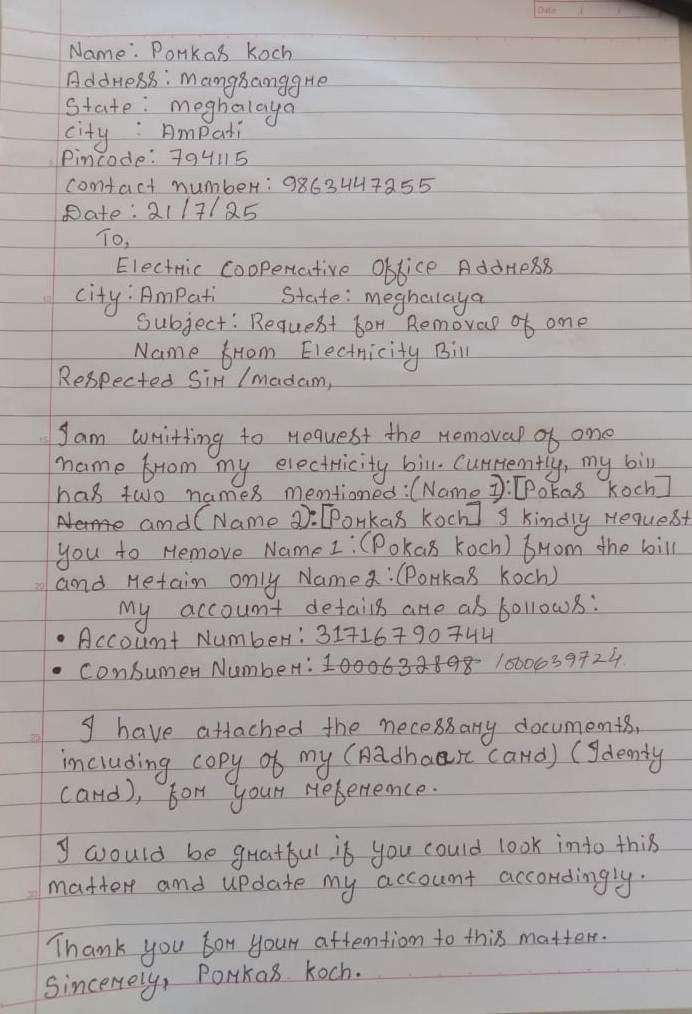 Name: Porkas Koch
Address: Mangsanggre
State: Meghalaya
City : Ampati
Pincode: 794115
Contact number: 9863447255
Date: 21/7/25
To,
Electric Cooperative Office Address
City: Ampati State: Meghalaya
Subject: Request for Removal of one
Name from Electricity Bill
Respected Sir/Madam,
I am writting to request the removal of one
name from my electricity bill. Currently, my bill
has two names mentioned: (Name 1):[Pokas Koch]
Name and (Name 2):[Porkas Koch] I kindly request
you to remove Name 1: (Pokas Koch) from the bill
and retain only Name 2: (Porkas Koch)
My account details are as follows:
• Account Number: 31716790744
• Consumer Number: 1000632898 1000639724
I have attached the necessary documents,
including copy of my (Aadhaar card) (Identy
card), for your reference.
I would be gratful if you could look into this
matter and update my account accordingly.
Thank you for your attention to this matter.
Sincerely, Porkas Koch.